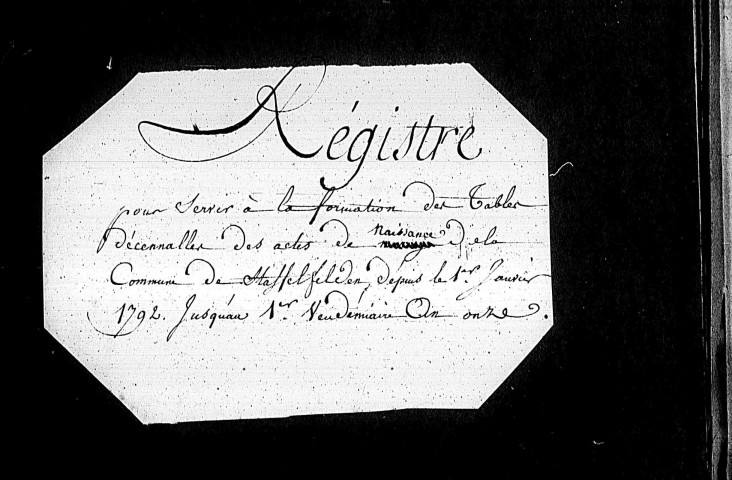 Régistre
pour Servir à la formation des Tables
Décennalles des actes de Naissance dela
Commune de Staffelfelden, depuis le 1er. Janvier
1792. Jusqu'au 1er. Vendémiaire An onze.